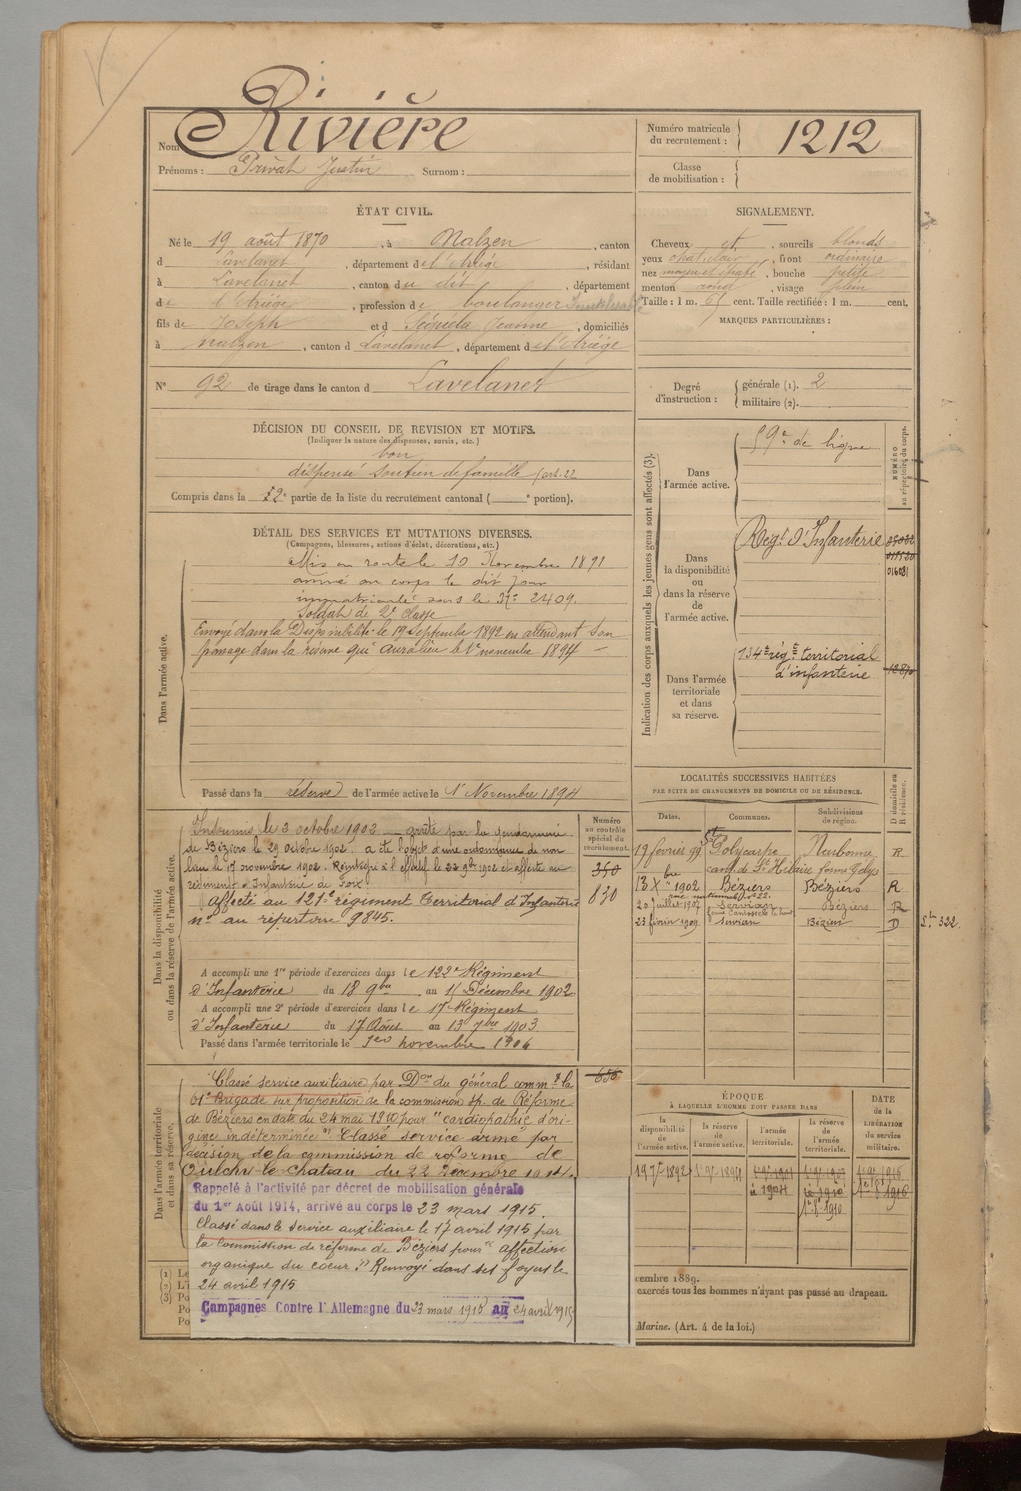 Nom Rivière
Prénoms : Privat Justin Surnom :
Numéro matricule du recrutement : 1212
Classe de mobilisation :
ÉTAT CIVIL.
Né le 19 août 1870, à Nalzen, canton
d Lavelanet, département de l'Ariége, résidant
à Lavelanet, canton du dit, département
de l'Ariége, profession de boulanger
fils de Joseph et d Jeanne, domiciliés
à Nalzen, canton d Lavelanet, département de l'Ariége
N° 92 de tirage dans le canton d Lavelanet
SIGNALEMENT.
Cheveux et, sourcils blonds
yeux chat clair, front ordinaire
nez, bouche petite
menton rond, visage plein
Taille : 1 m. 65 cent. Taille rectifiée : 1 m. cent.
MARQUES PARTICULIÈRES :
Degré d'instruction : générale (1). 2
militaire (2).
DÉCISION DU CONSEIL DE REVISION ET MOTIFS.
(Indiquer la nature des dispenses, sursis, etc.)
bon
dispensé soutien de famille (art. 22
Compris dans la 2e partie de la liste du recrutement cantonal ( e portion).
DÉTAIL DES SERVICES ET MUTATIONS DIVERSES.
(Campagnes, blessures, actions d'éclat, décorations, etc.)
Dans l'armée active.
Mis en route le 10 Novembre 1891
arrivé au corps le dit jour
immatriculé sous le N° 2409.
Soldat de 2e classe
Envoyé dans la Disponibilité le 19 Septembre 1892 en attendant son
passage dans la réserve qui aura lieu le 1er novembre 1894 —
Passé dans la réserve de l'armée active le 1er Novembre 1894
Indication des corps auxquels les jeunes gens sont affectés (3).
NUMÉRO au répertoire du corps.
Dans l'armée active.
59e de ligne
Dans la disponibilité ou dans la réserve de l'armée active.
Régt d'Infanterie
016031
Dans l'armée territoriale et dans sa réserve.
134e rég. territorial
d'infanterie
LOCALITÉS SUCCESSIVES HABITÉES
PAR SUITE DE CHANGEMENTS DE DOMICILE OU DE RÉSIDENCE.
Dates. Communes. Subdivisions de région. D domicile ou R résidence.
19 février 99 St Polycarpe Narbonne R
cant. de St Hilaire
13 Xbre 1902 Béziers Béziers R
20 juillet 1907 Servian Béziers R
23 février 1909 Servian Béziers D
322
Dans la disponibilité ou dans la réserve de l'armée active.
Numéro au contrôle spécial du recrutement.
Insoumis le 3 octobre 1902 — arrêté par la gendarmerie
de Béziers le 29 octobre 1902. a été l'objet d'une ordonnance de non
lieu le 17 novembre 1902. Réintégré à l'effectif le 1902 et affecté au
régiment d'Infanterie de Foix
affecté au 121e régiment Territorial d'Infanterie
n° au répertoire 9845.
360
830
A accompli une 1re période d'exercices dans le 122e Régiment
d'Infanterie du 18 9bre au 11 Décembre 1902
A accompli une 2e période d'exercices dans le 17e Régiment
d'Infanterie du 17 Août au 13 7bre 1903
Passé dans l'armée territoriale le 1er novembre 1904
Dans l'armée territoriale et dans sa réserve.
Classé service auxiliaire par Don du général commt la
61e brigade sur proposition de la commission sp. de Réforme
de Béziers en date du 24 mai 1910 pour "cardiopathie d'ori-
gine indéterminée". Classé service armé par
décision de la commission de réforme de
Oulchy-le-chateau du 22 Décembre 1914.
Rappelé à l'activité par décret de mobilisation générale
du 1er Août 1914, arrivé au corps le 23 mars 1915.
Classé dans le service auxiliaire le 17 avril 1915 par
la Commission de réforme de Béziers pour "affection
organique du coeur." Renvoyé dans ses foyers le
24 avril 1915
Campagnes Contre l'Allemagne du 23 mars 1915 au 24 avril 1915
ÉPOQUE
À LAQUELLE L'HOMME DOIT PASSER DANS
la disponibilité de l'armée active. la réserve de l'armée active. l'armée territoriale. la réserve de l'armée territoriale.
DATE de la LIBÉRATION du service militaire.
(1) Le
(2) L'i
(3) Po
Po
Po
cembre 1889.
exercés tous les hommes n'ayant pas passé au drapeau.
Marine. (Art. 4 de la loi.)